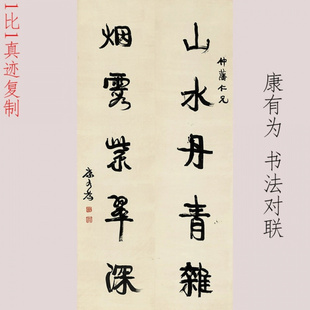 1比1真迹复制
康有为 书法对联
仲藩仁兄
山水丹青雜
烟霞紫翠深
康有為